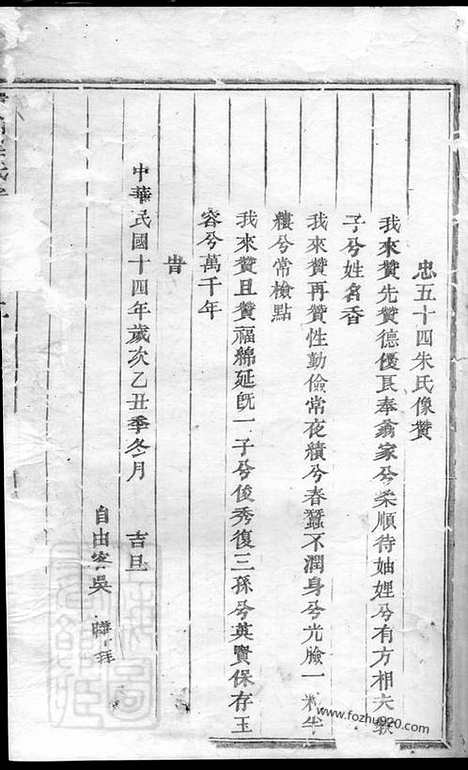 忠五十四朱氏像贊
我來贊先贊德優良奉翁家兮柔順待妯娌兮有方相夫教
子兮姓名香
我來贊再贊性勤儉常夜績兮春蠶不潤身兮光臉一粒半
縷兮常檢點
我來贊且贊福綿延旣一子兮俊秀復三孫兮英賢保存玉
容兮萬千年
旹
中華民國十四年歲次乙丑季冬月 吉旦
自由客吳 拜
www.fozhu920.com